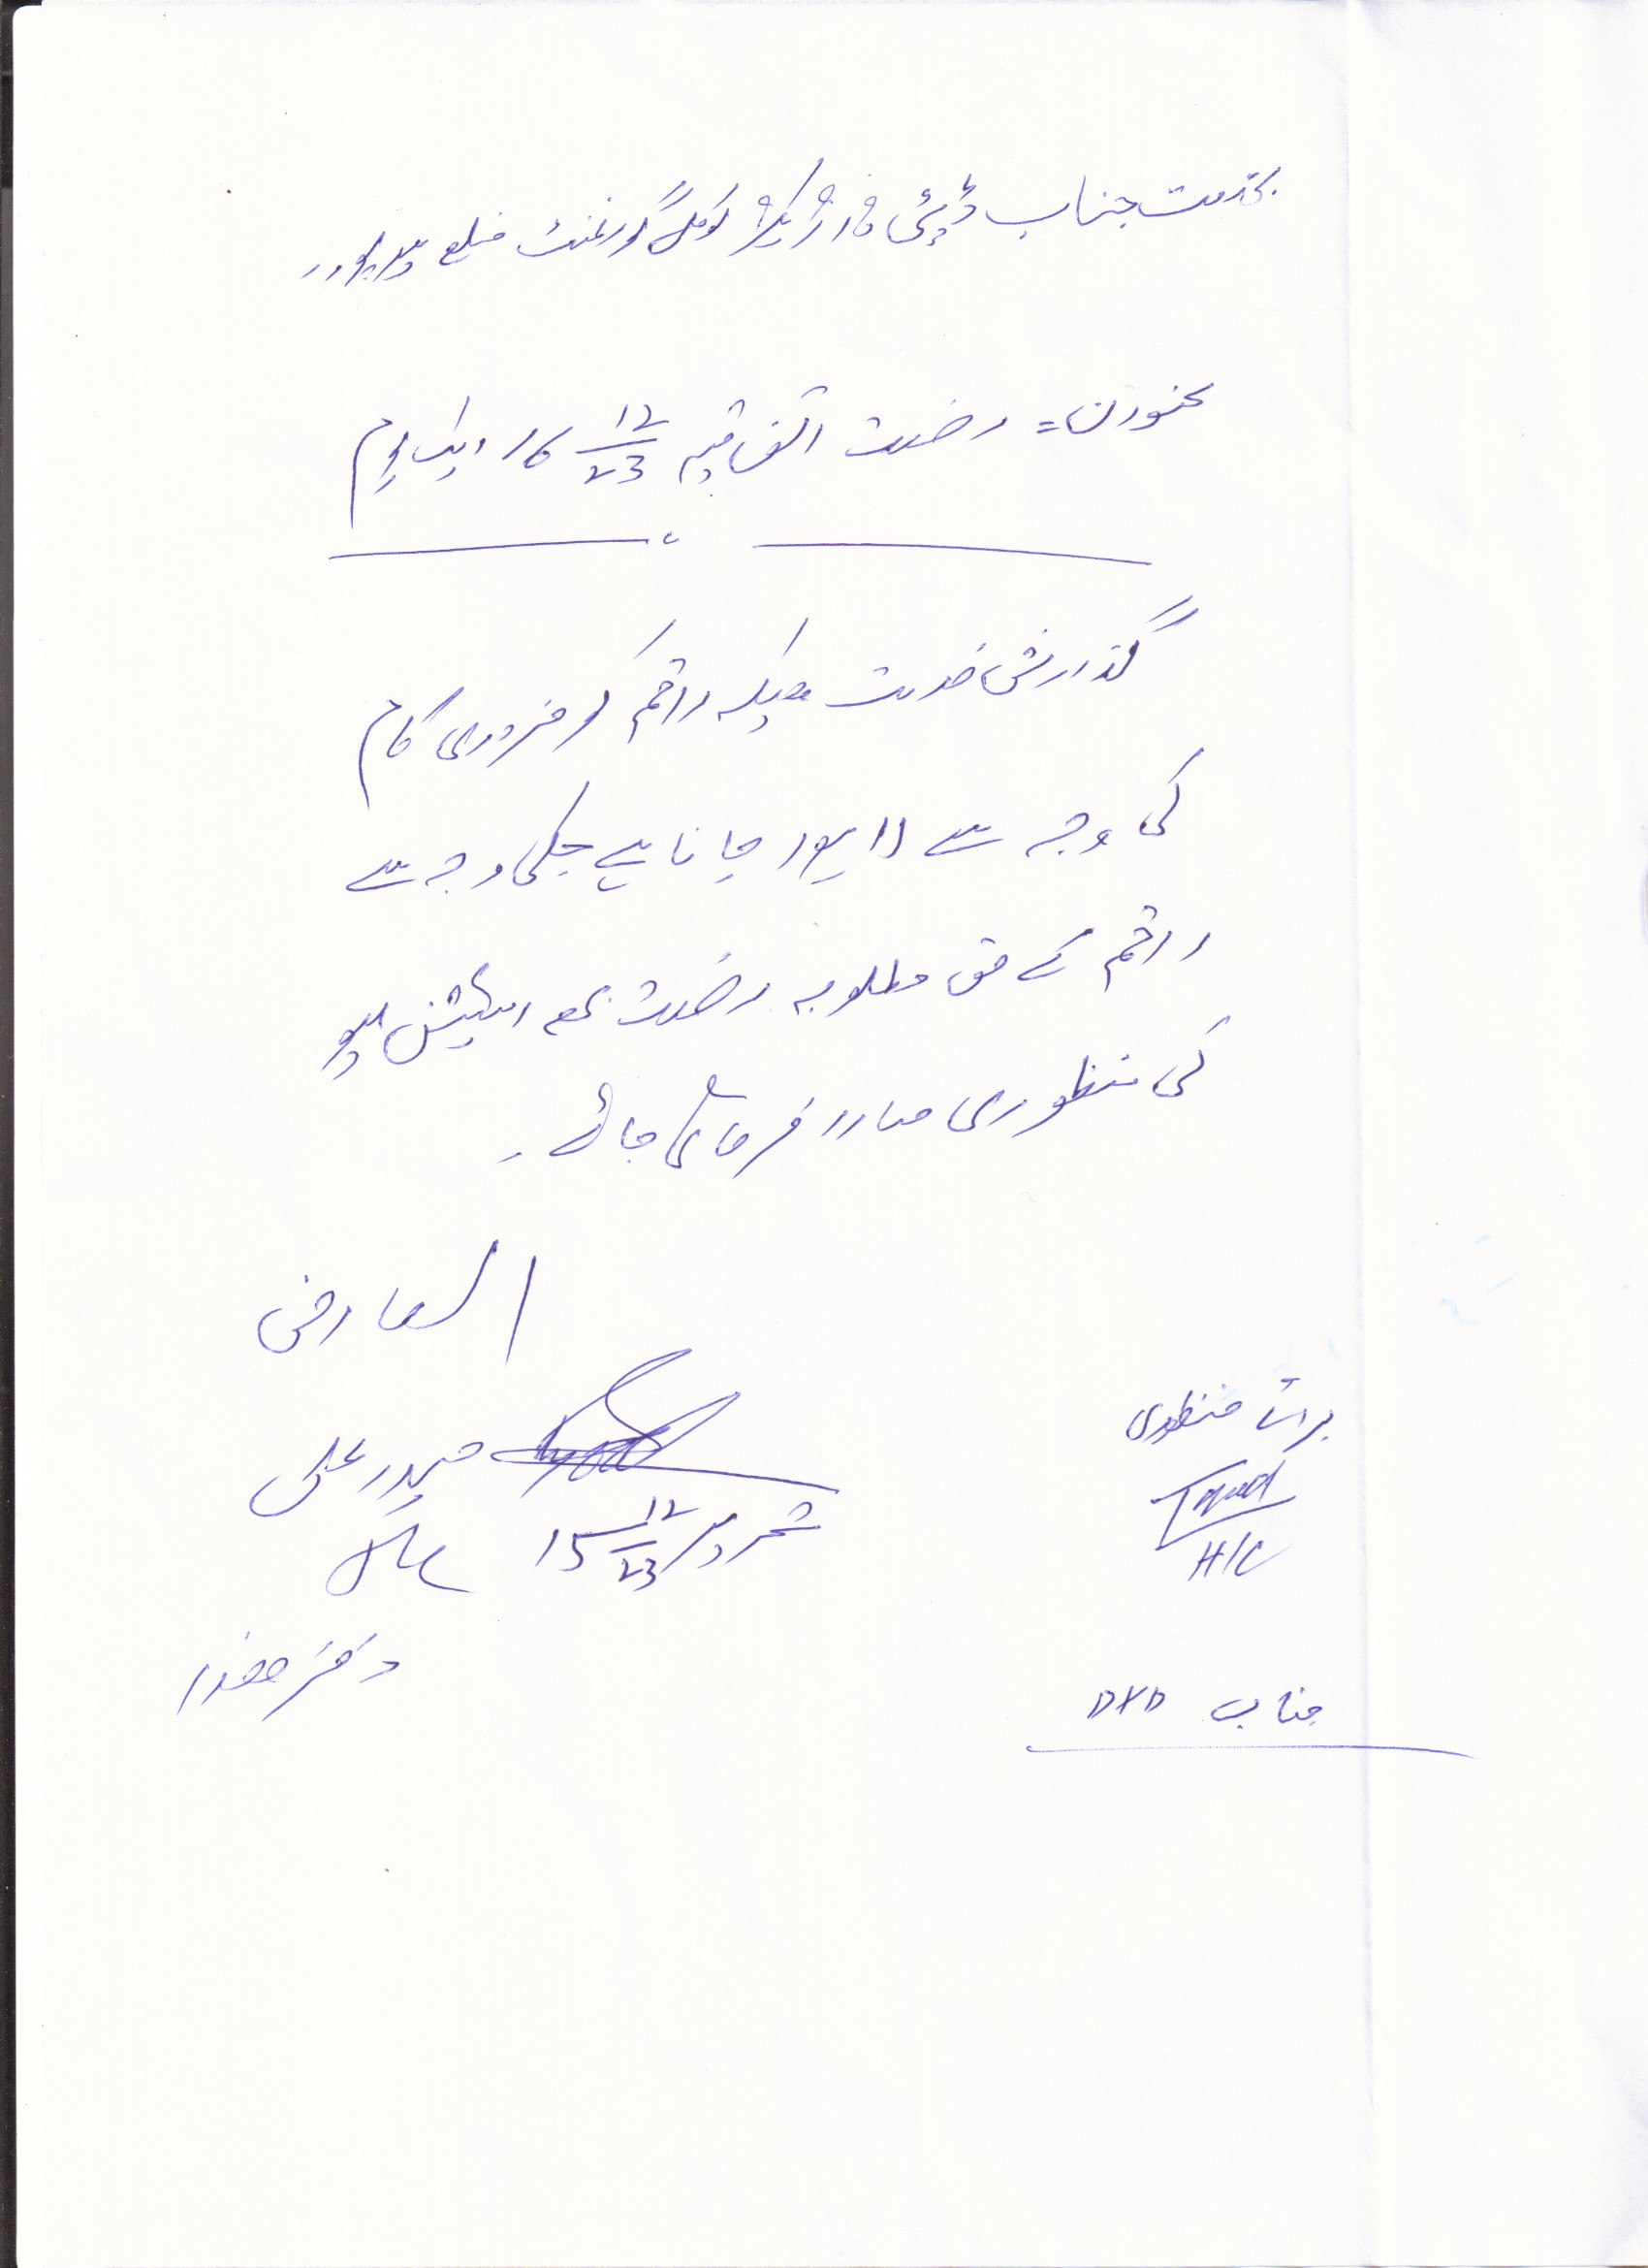 بخدمت جناب ڈپٹی ڈائریکٹر لوکل گورنمنٹ ضلع
بعنوان = رخصت اتفاقیہ 16 12/23 ایک یوم
گذارش خدمت ہیکہ راقم کو ضروری کام
کی وجہ سے لاہور جانا ہے جسکی وجہ سے
راقم کے حق مطلوبہ رخصت بمعہ اسٹیشن لیو
کی منظوری صادر فرمائی جائے۔
العارض
حیدر علی
تحریر 15 12/23
دفتر حضور
برائے منظوری
H/C
جناب